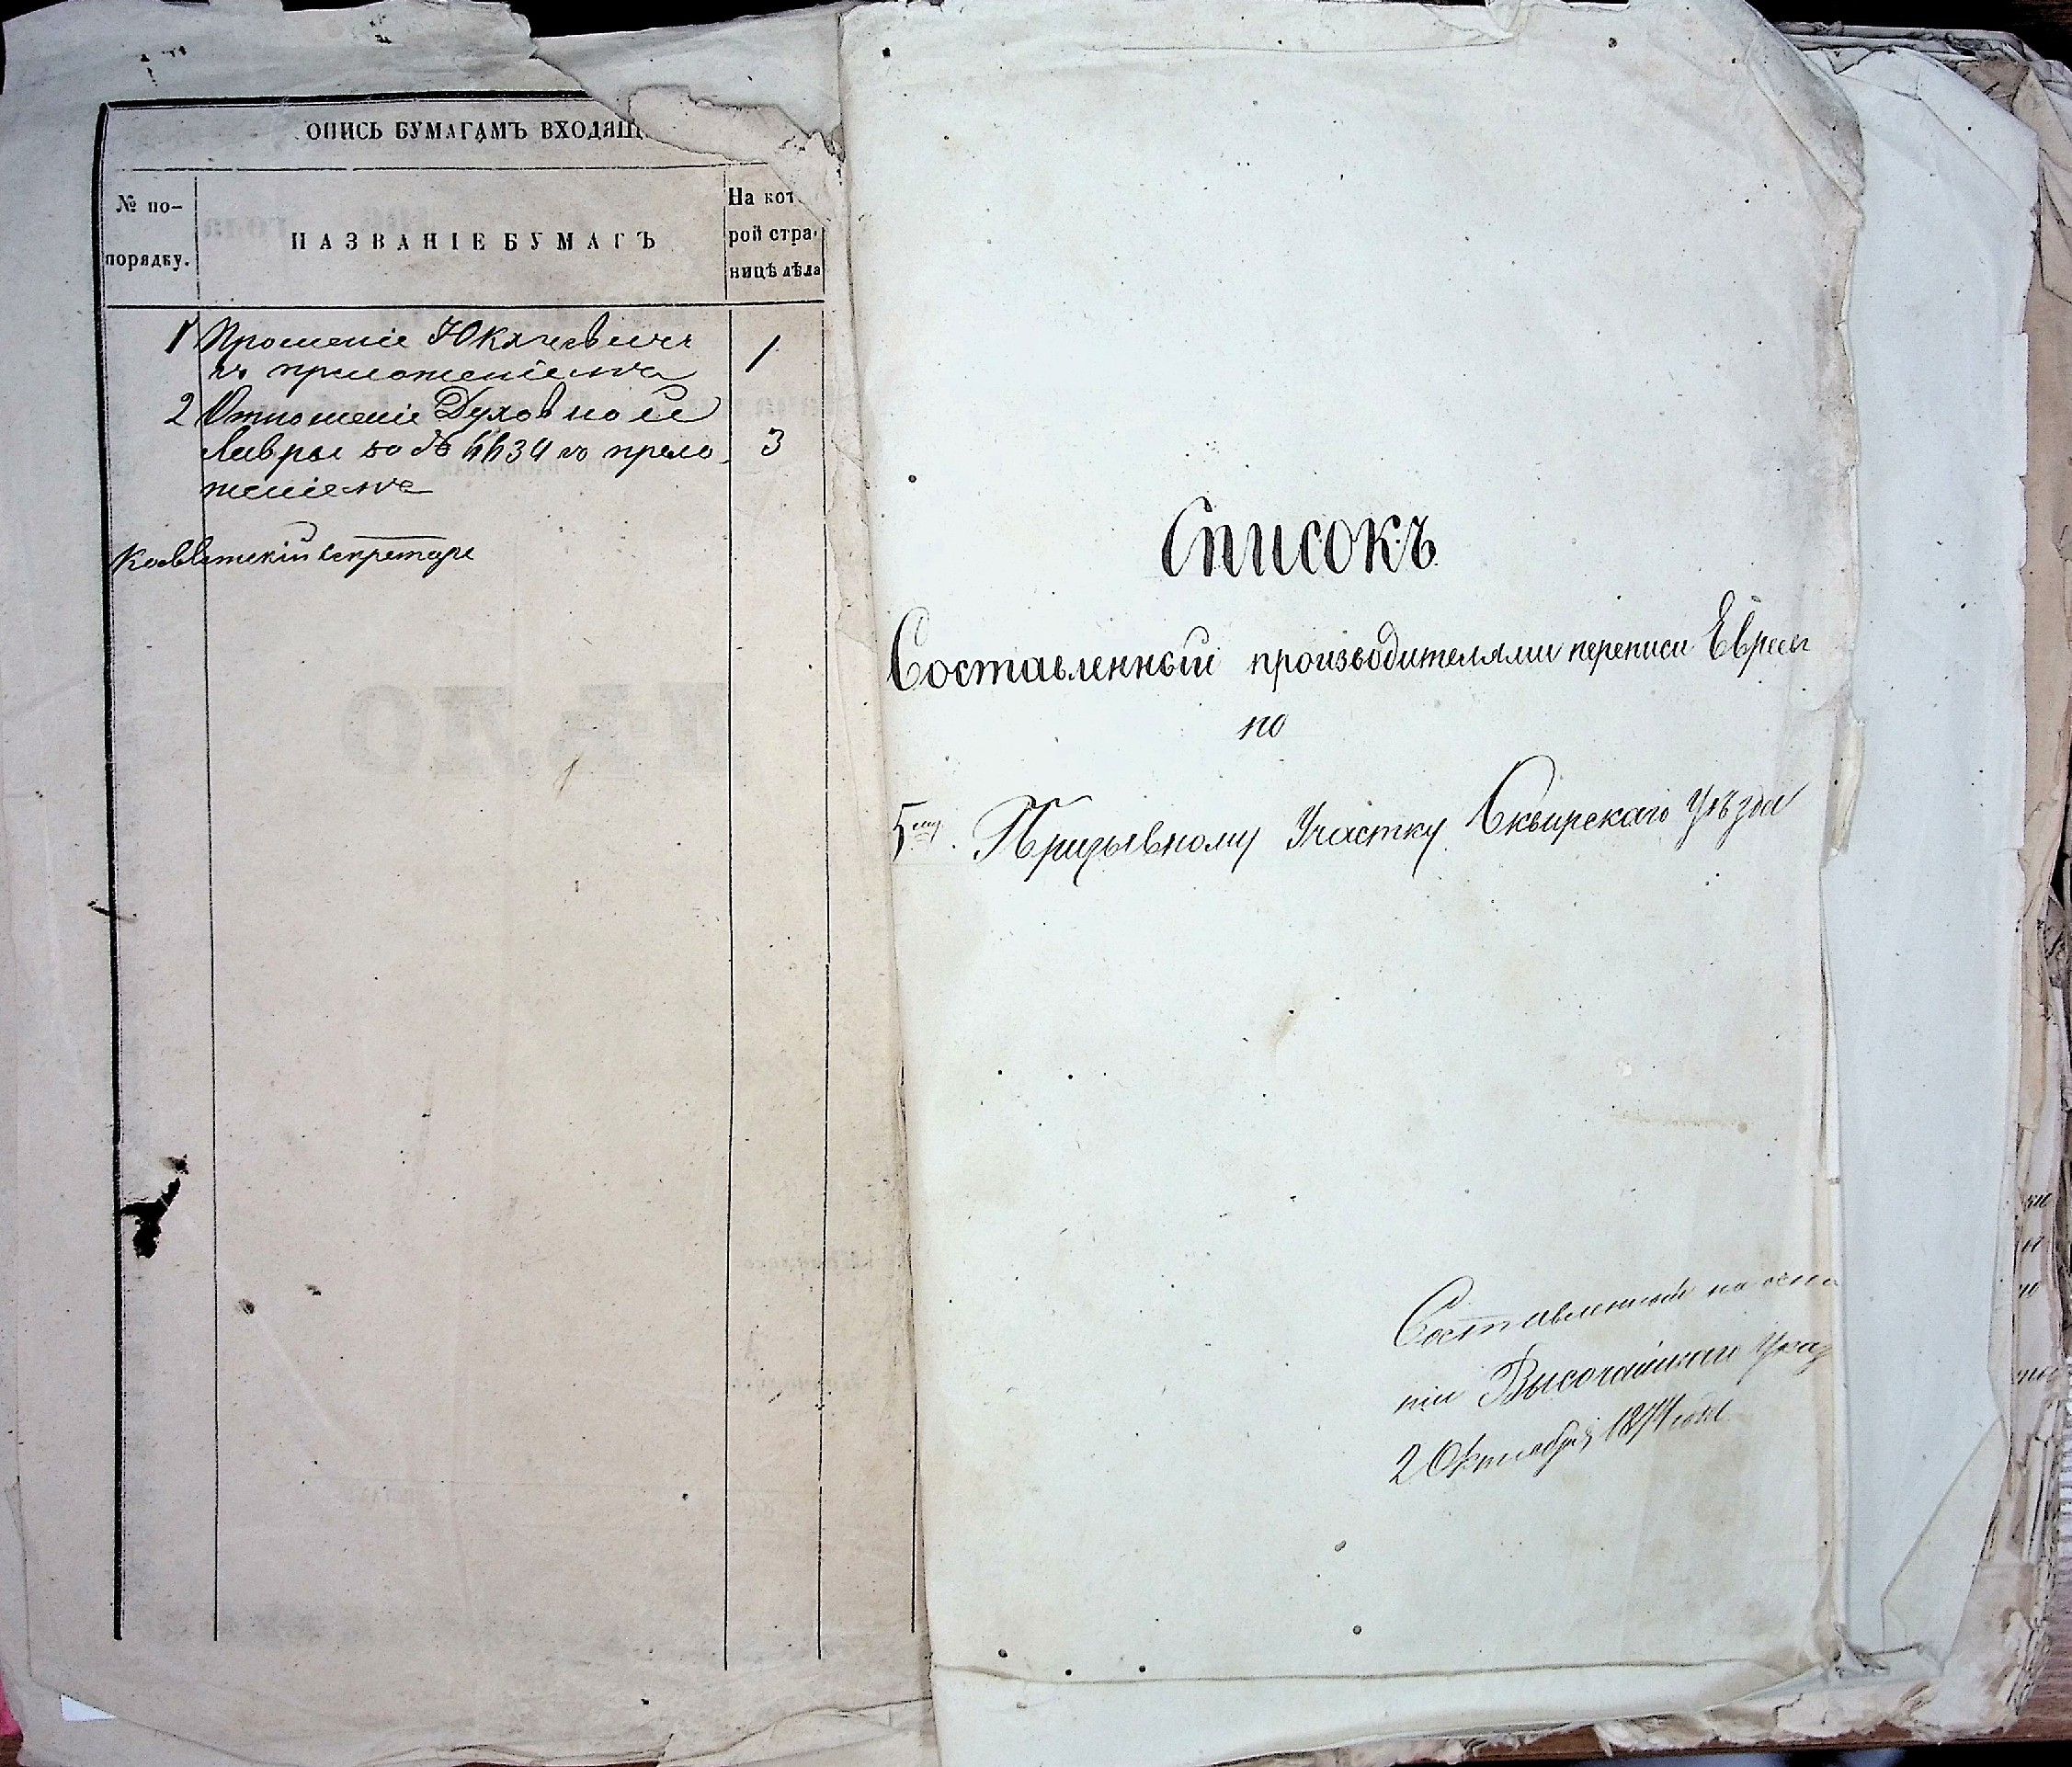 ОПИСЬ БУМАГАМЪ ВХОДЯЩ
№ по-
порядку.
НАЗВАНІЕ БУМАГЪ
На кот
рой стра-
ницѣ дѣла
1 Прошеніе Юкачевича 1
съ приложеніемъ
2 Отношеніе Духовной
Лавры за № 4434 съ прило 3
женіемъ
секретарь
Списокъ
Составленный производителями переписи Евреевъ
по
5му Призывному Участку Сквирскаго Уѣзда
Составленный на осно
ніи Высочайшаго Указ
2 Октября 1874 года